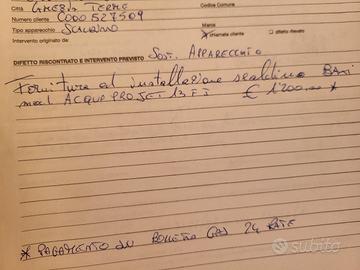 Città LAMEZIA TERME Codice Comune
Numero cliente C000527509
Tipo apparecchio SCALDINO Marca
Intervento originato da: chiamata cliente difetto rilevato
DIFETTO RISCONTRATO E INTERVENTO PREVISTO SOST. APPARECCHIO
Fornitura ed installazione scaldino BAXI
mod ACQUAPROJET 13 FI € 1200,00 *
* PAGAMENTO IN BOLLETTA GAS 24 RATE
subito